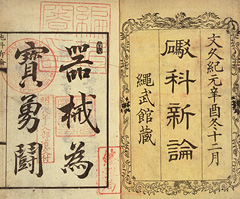 文久紀元辛酉冬十二月
礮科新論
繩武館蔵
器械為
寶勇鬪